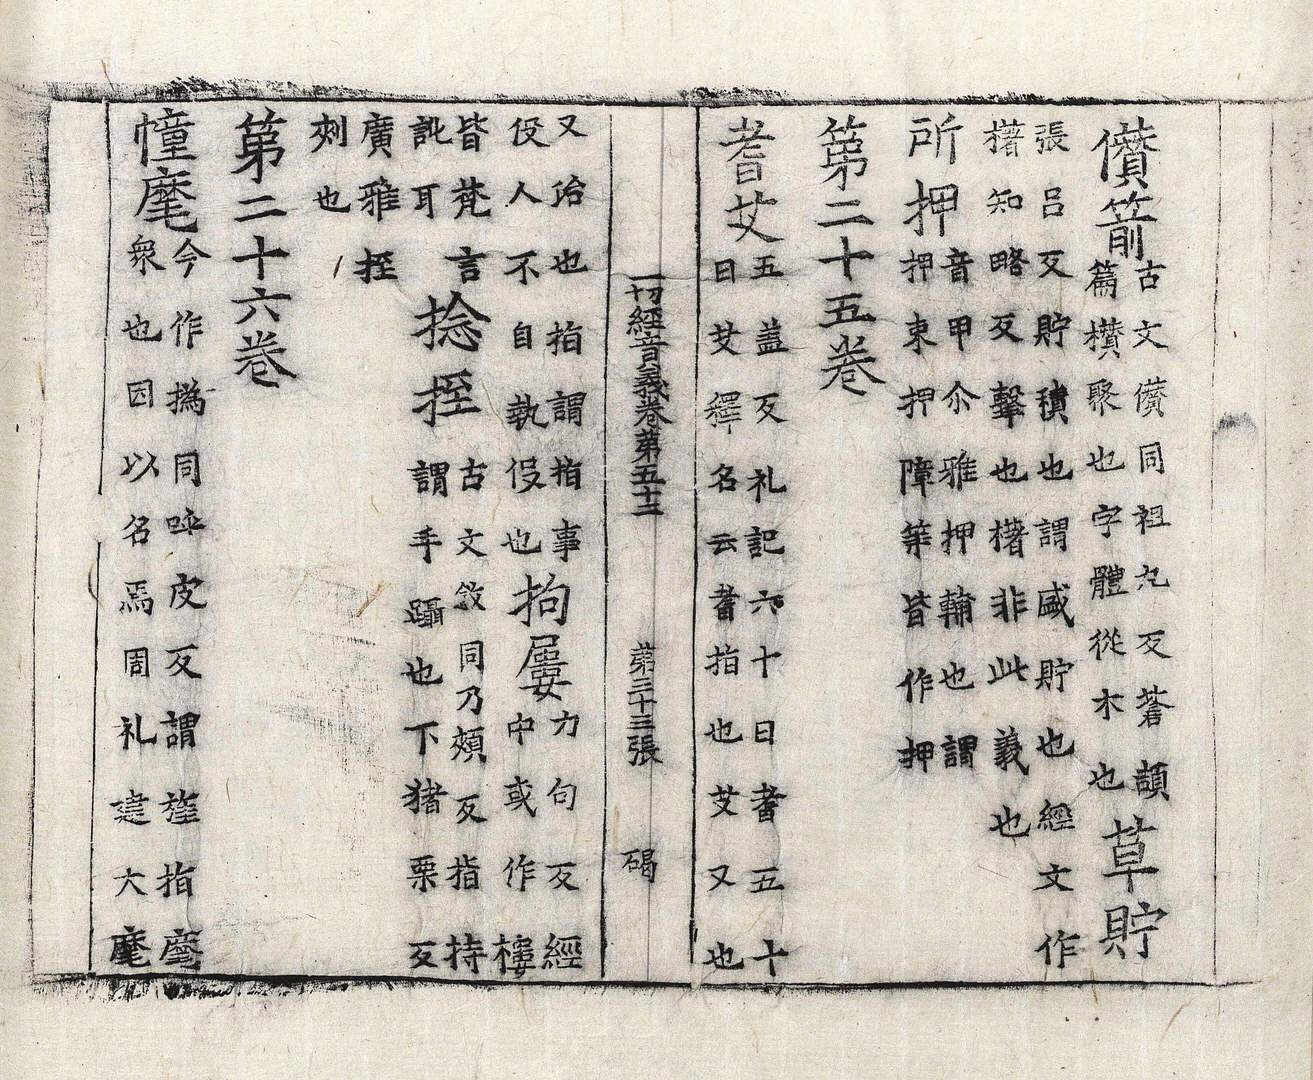 儹箭古文儹同祖丸反蒼頡
篇攢聚也字體從木也草貯
張呂反貯積也謂盛貯也經文作
㩇知略反擊也㩇非此義也
所押音甲尒雅押輔也謂
押束押障等皆作押
第二十五卷
耆艾五蓋反礼記六十曰耆五十
曰艾釋名云耆指也艾又也
一切經音義卷第五十三 第三十三張 碣
又治也指謂指事
伇人不自執伇也拘屢力句反經
中或作樓
皆梵言捻挃古文敜同乃頰反指持
訛耳謂手躡也下猪栗反
廣雅挃
刾也
第二十六卷
幢麾今作撝同呼皮反謂旌指麾
衆也因以名焉周礼建大麾